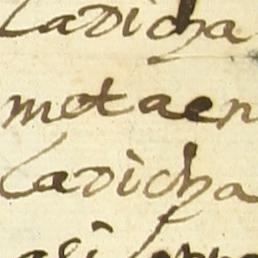 La dicha
meta en
La dicha